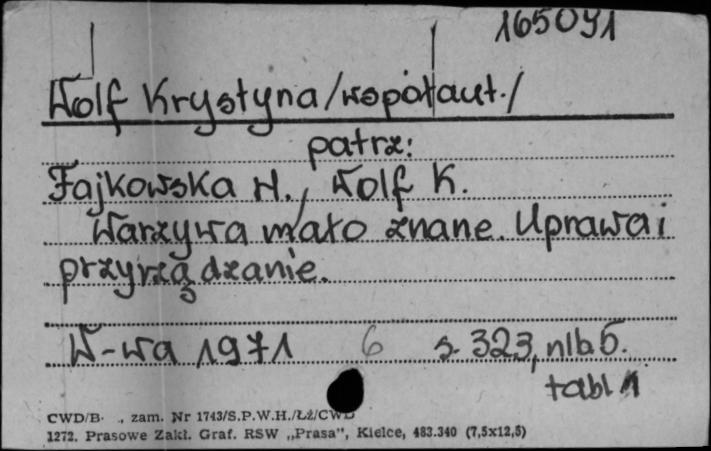 165091
Wolf Krystyna /współaut./
patrz:
Fajkowska H., Wolf K.
Warzywa mało znane. Uprawa i
przyrządzanie.
W-wa 1971 6 s. 323, nlb 6.
tabl 1
CWD/B- ., zam. Nr 1743/S.P.W.H./Łż/CWD
1272. Prasowe Zakł. Graf. RSW „Prasa”, Kielce, 483.340 (7,5x12,5)